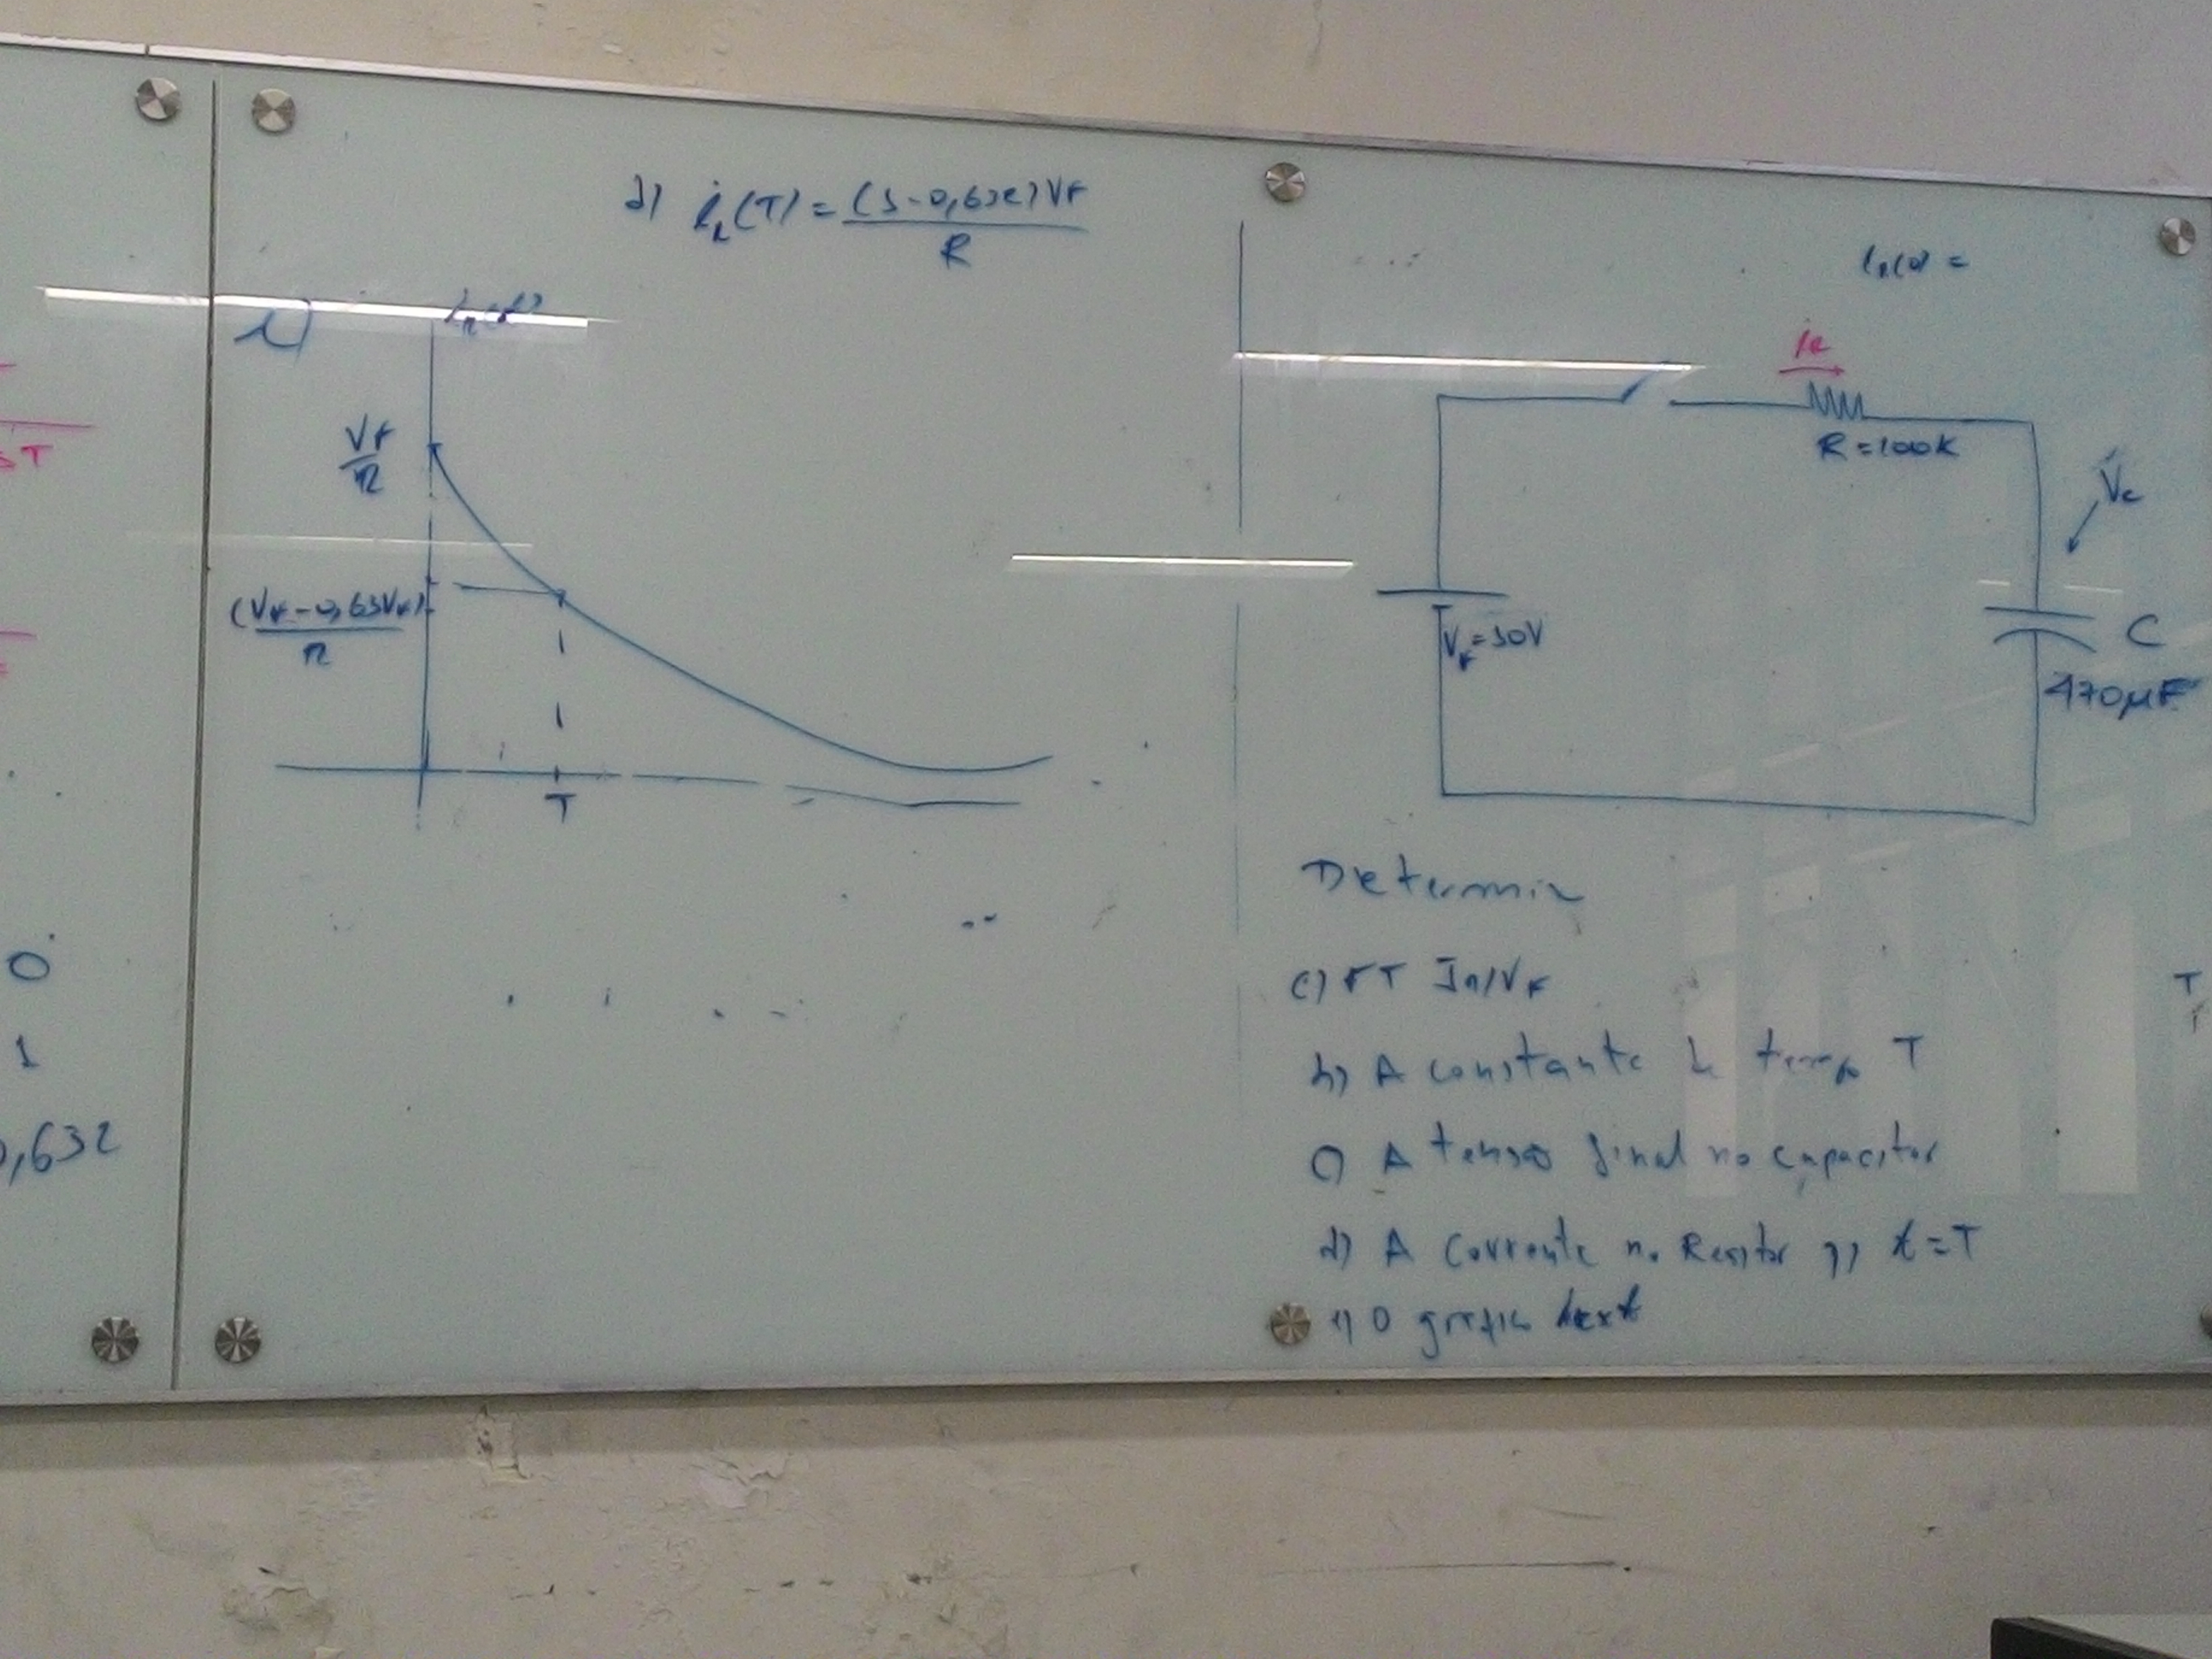 ST
0
1
0,632
d) iR(T) = (1-0,632)VF
R
e)
iR(t)
VF
R
(VF-0,63VF)
R
T
iR(0) =
iR
R=100K
Vc
VF=10V
C
470µF
Determin
a) FT IR/VF
b) A constante de tempo T
c) A tensão final no capacitor
d) A corrente no Resistor p/ t=T
e) O gráfico iR x t
T